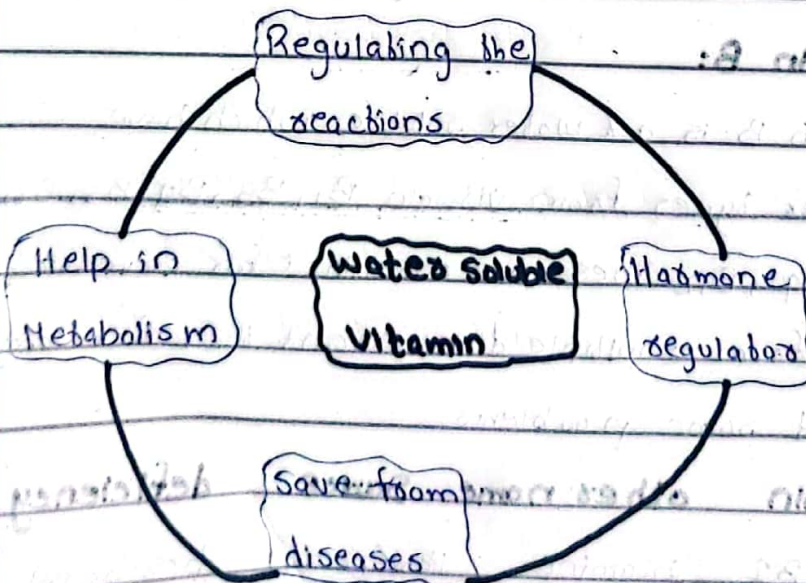 Regulating the
reactions
Help in
Metabolism
Water Soluble
Vitamin
Harmone
regulator
Save from
diseases